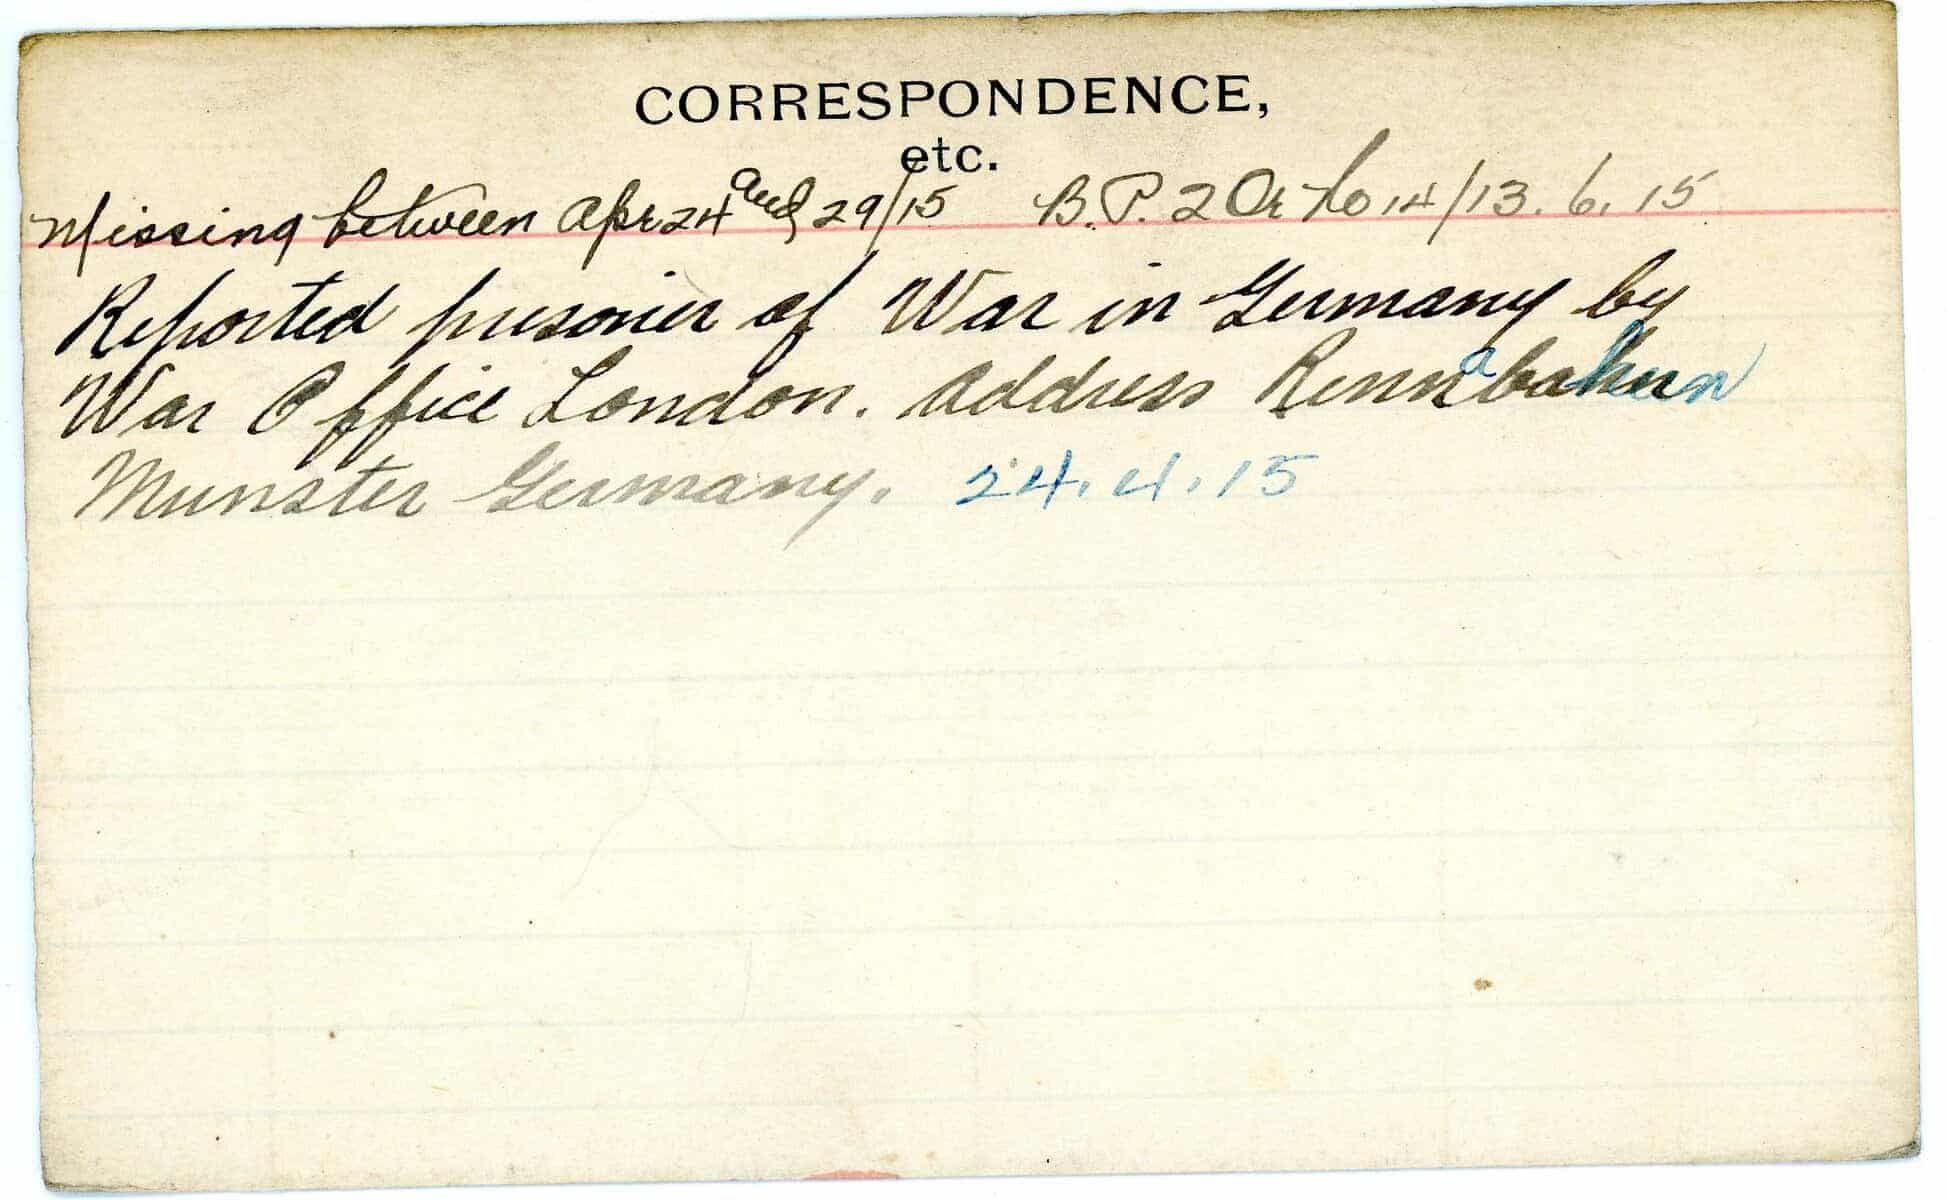 CORRESPONDENCE,
etc.
Missing between Apr 24 and 29/15 B.P. 2 Or No 14/13.6.15
Reported prisoner of War in Germany by
War Office London. Address Rennbahn
Munster Germany. 24.4.15